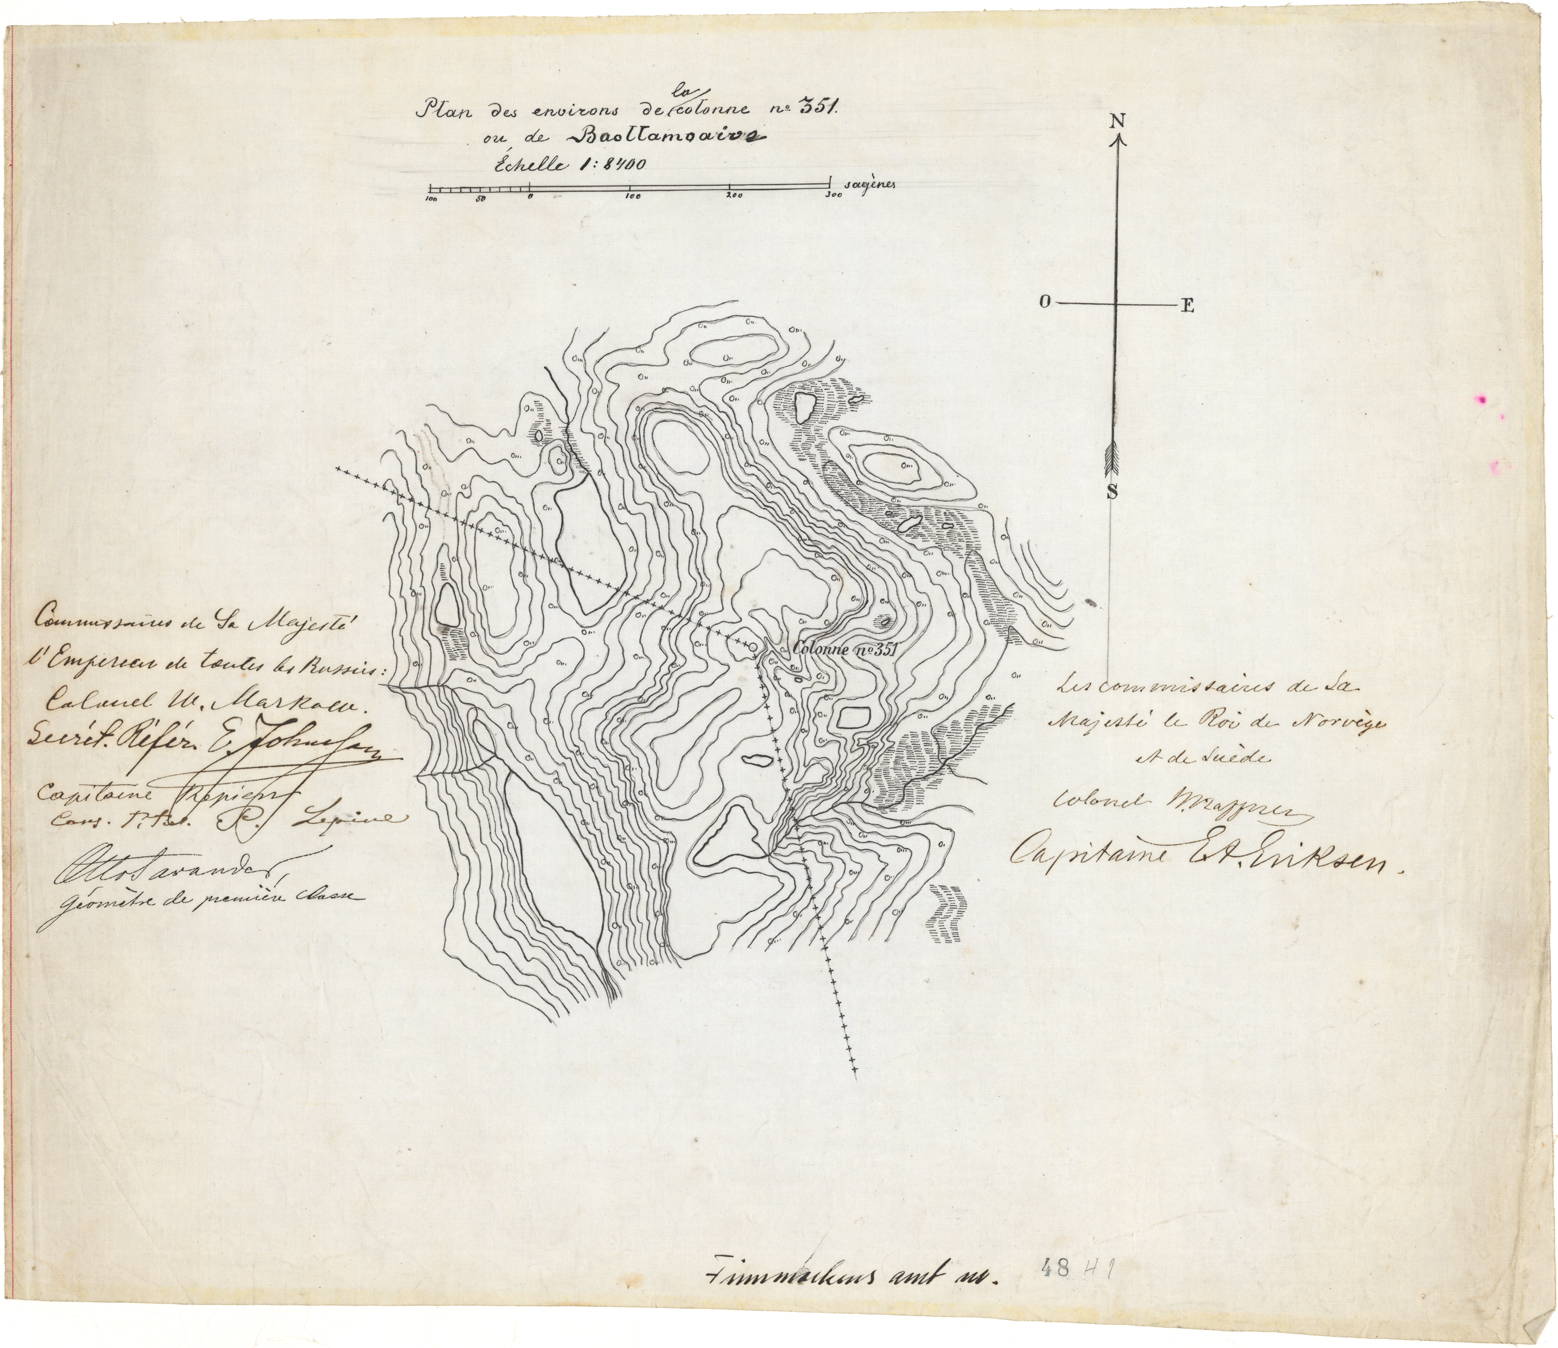 Plan des environs de la colonne nº 351.
ou de Baollamoaive
Échelle 1:8400
100 50 0 100 200 300 sagènes
N
O E
S
Colonne nº 351
Commissaires de Sa Majesté
l'Empereur de toutes les Russies:
Colonel W. Markow.
Secrét. Référ. E. Johnson
Capitaine
Lepine
Otto Savander,
géomètre de première classe
Les commissaires de Sa
Majesté le Roi de Norvège
et de Suède
Colonel
Capitaine Eriksen.
Finmarkens amt no. 48 41